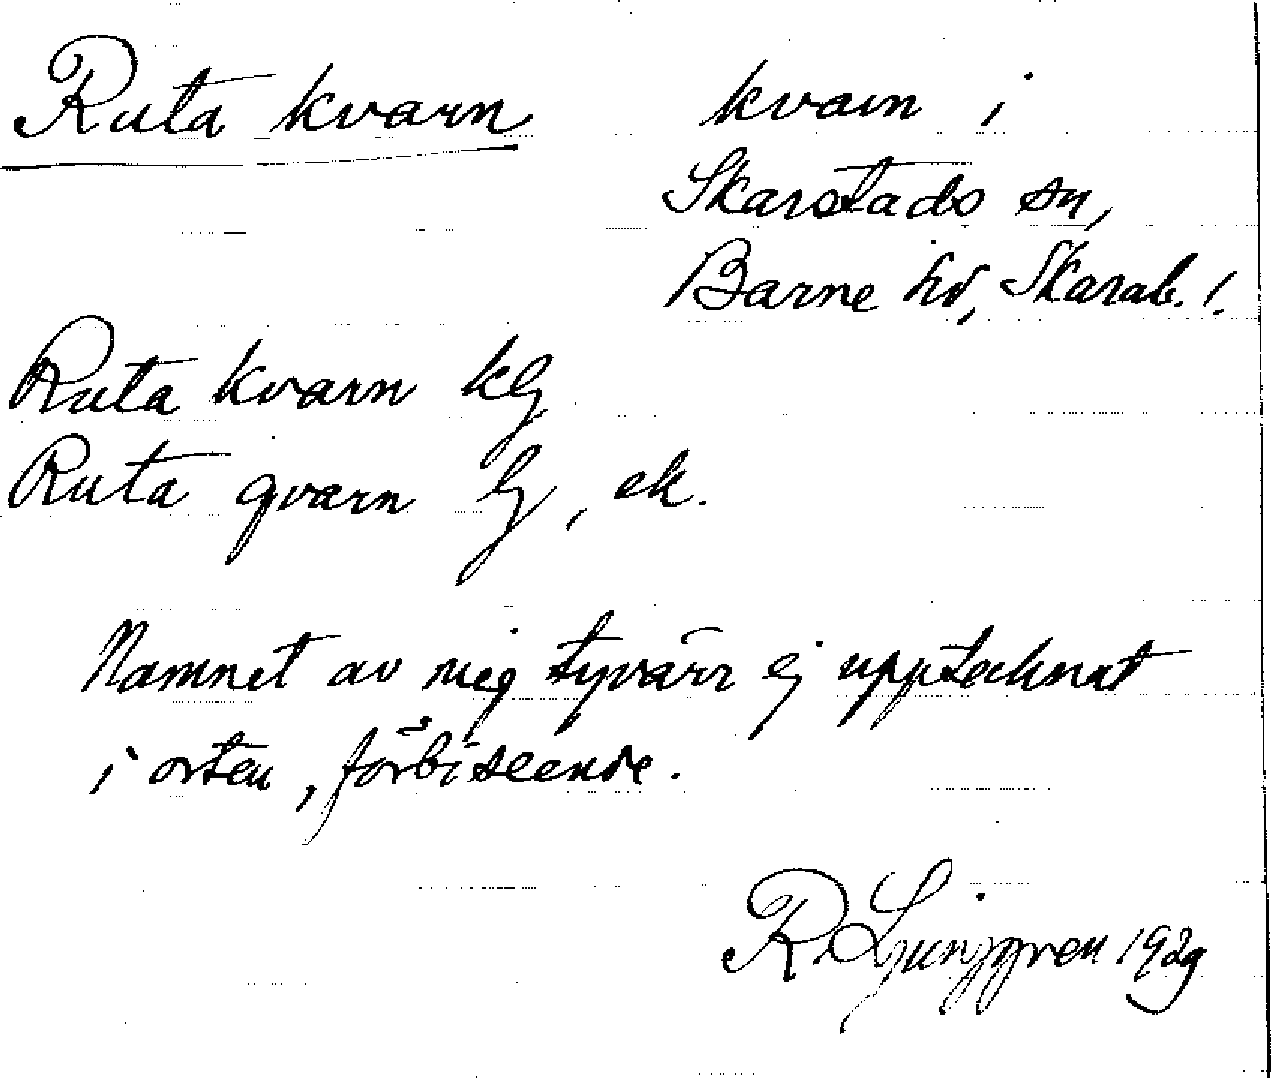 Ruta kvarn
kvarn i
Skarstads sn,
Barne hd, Skarab. l.
Ruta kvarn kg
Ruta qvarn Jg, ek.
Namnet av mig tyvärr ej upptecknat
i orten, förbiseende.
R. Ljunggren 1929